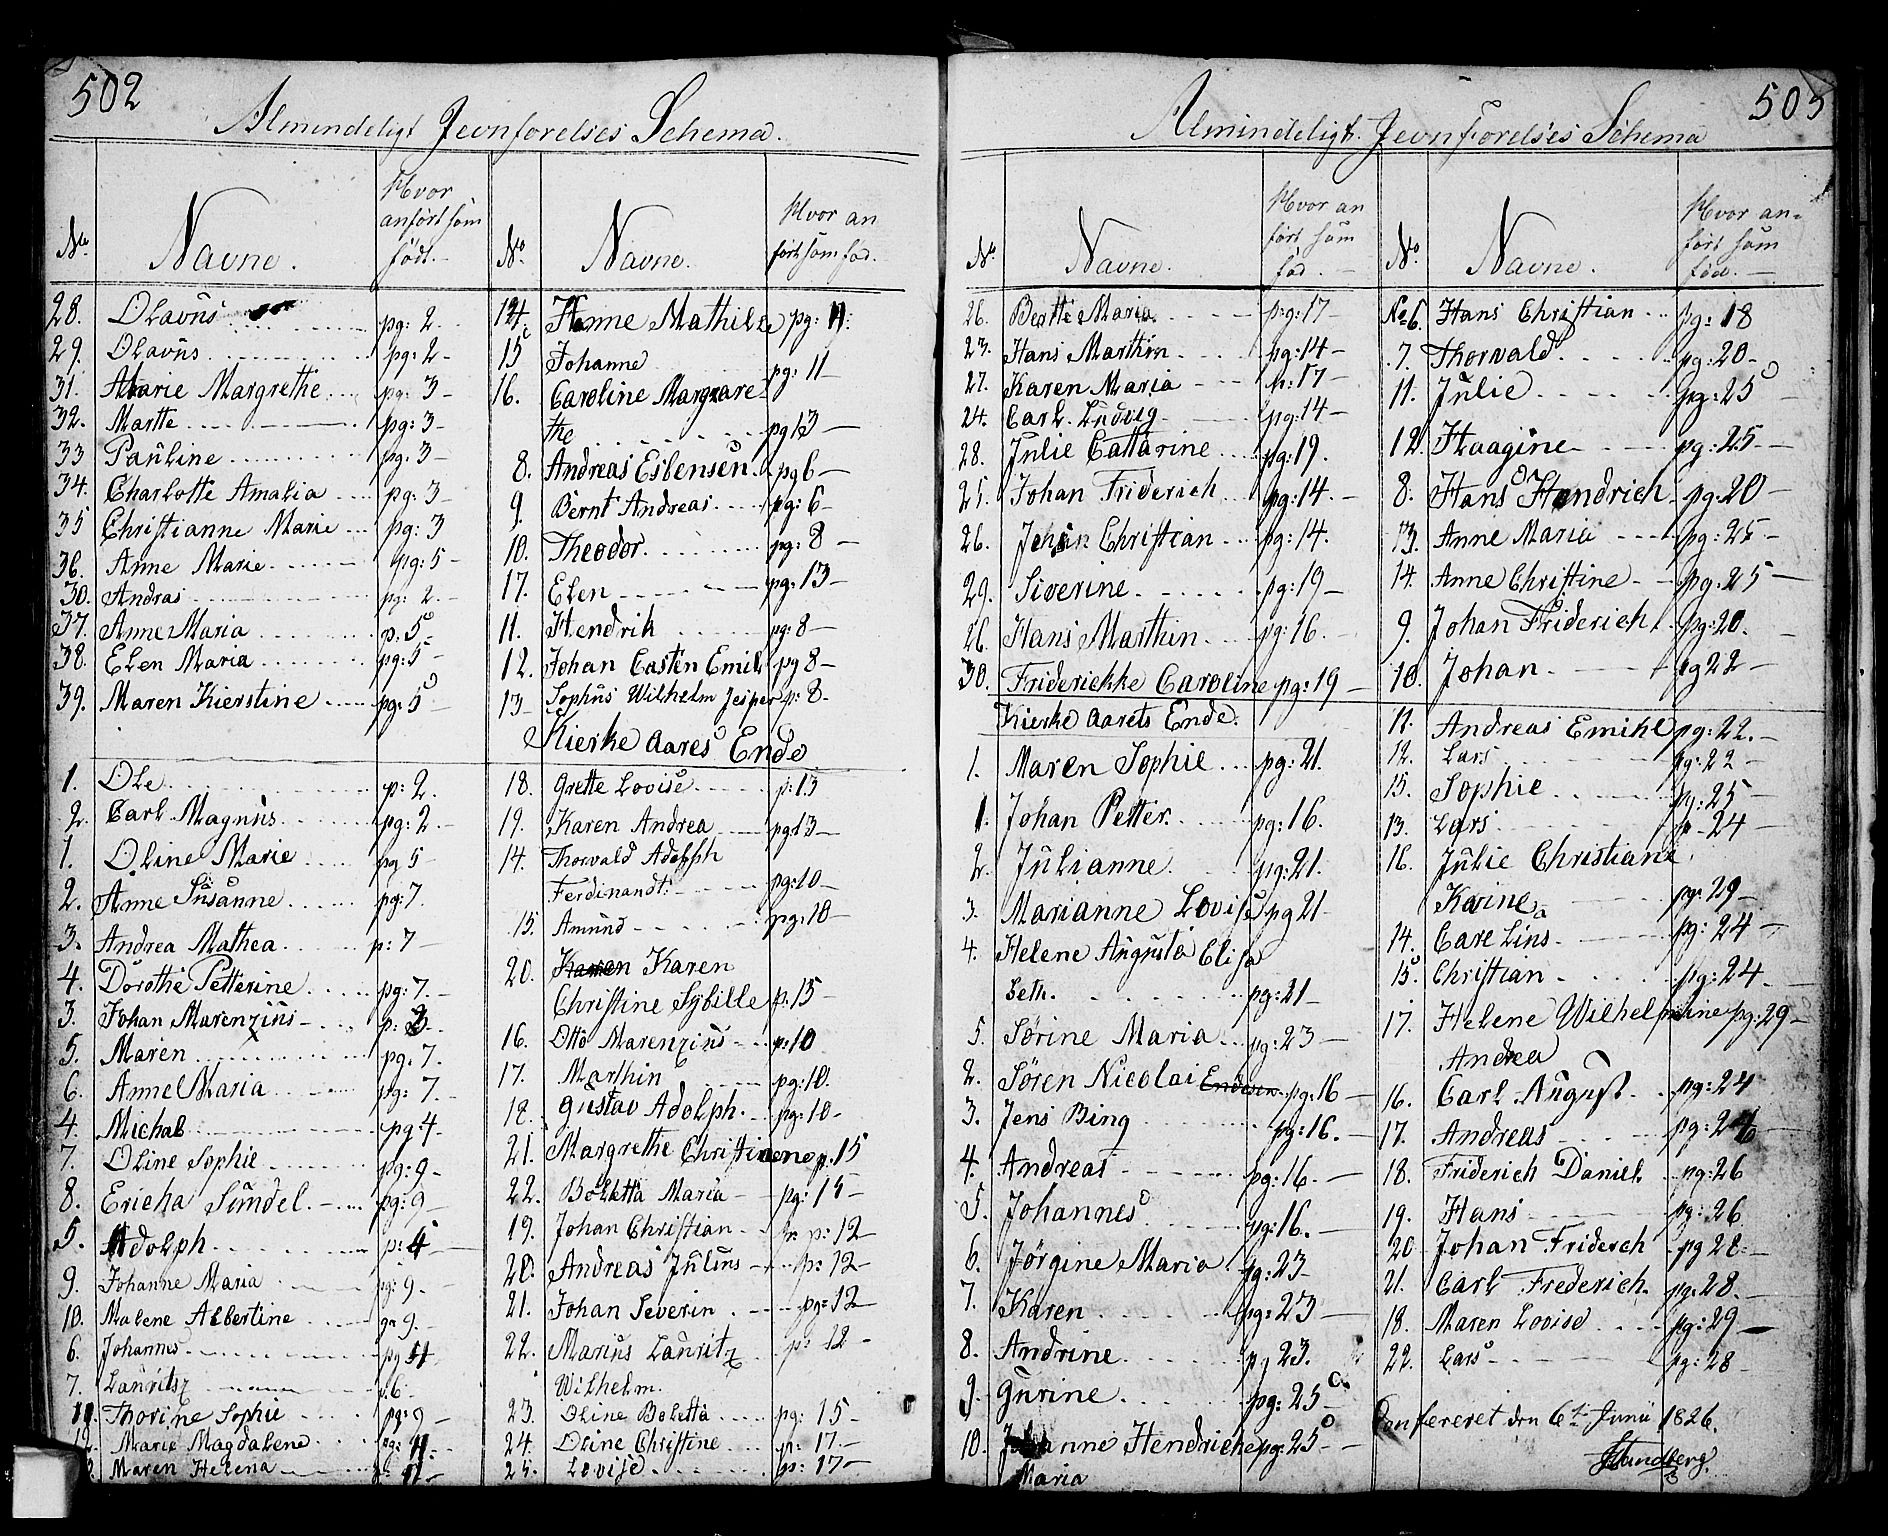 502
Almindeligt Jevnførelses Schema.
No. Navne. Hvor anført som født.
28. Olavus pg: 2.
29. Olavus pg: 2
31. Marie Margrethe pg: 3
32. Marthe pg: 3
33 Pauline pg: 3
34. Charlotte Amalia pg: 3
35 Christianne Marie pg: 3
36. Anne Marie pg: 5
30. Andras pg: 2.
37. Anne Maria p: 5
38. Elen Maria pg: 5
39. Maren Kierstine pg: 5
1. Ole p: 2.
2. Carl Magnus pg: 2.
1. Oline Marie pg 5
2. Anne Susanne pg: 7.
3. Andrea Mathea p: 7
4. Dorothe Petterine pg: 7.
3. Johan Marenzius p: 3
5. Maren pg. 7.
6. Anne Maria pg: 7.
4. Michal pg 4
7. Oline Sophie pg: 9
8. Ericha Sundel. pg: 9
5. Adolph p: 4
9. Johanne Maria pg: 9
10. Malene Albertine pg 9.
6. Johannes pg 4
7. Lauritz p. 6
11. Thorine Sophie pg: 9
12. Marie Magdalene pg: 11.
Maren Helena p: 11
No. Navne. Hvor anført som fød.
14. Hanne Mathilde pg: 11.
15 Johanne pg: 11
16. Caroline Margrare
the pg 13
8. Andreas Esbensen. pg 6
9. Bernt Andreas pg: 6
10. Theodor pg: 8
17. Elen pg: 13
11. Hendrik pg: 8
12. Johan Casten Emil pg 8
13 Sophus Wilhelm Jesper p: 8.
Kierke Aares Ende
18. Grette Lovise p: 13
19. Karen Andrea pg 13
14. Thorvald Adolph
Ferdinandt pg: 10
15. Amund pg: 10
20. Karen Karen
Christine Sybille p: 15
16. Otto Marenzius p: 10
17. Marthin pg: 10.
18. Gustav Adolph. pg: 10
21. Margrethe Christianene p. 15
22. Boletta Maria pg: 15
19. Johan Christian p: 12
20. Andreas Julius p: 12
21. Johan Severin pg: 12
22. Marius Lauritz p: 12
Wilhelm.
23. Oline Boletta pg: 15
24. Oline Christine p: 17.
25. Lovise p: 17
503
Almindeligt Jevnførelses Schema
No. Navne. Hvor anført som fød.
26. Berthe Maria pg: 17
23. Hans Marthin pg: 14
27. Karen Maria p: 17
24. Carl Ludvig pg: 14
28. Julie Cattarine pg: 19.
25. Johan Friderich pg: 14.
26. Johan Christian pg: 14.
29. Siverine pg: 19
26. Hans Marthin pg: 16.
30. Friderickke Caroline pg: 19
Kierke Aarets Ende.
1. Maren Sophie pg: 21.
1. Johan Petter. pg: 16.
2. Julianne pg: 21.
3. Marianne Lovise pg 21
4. Helene Augusta Elisa
beth. pg: 21
5. Sørine Maria pg: 23
2. Søren Nicolai Endersen pg: 16
3. Jens Bing pg: 16.
4. Andreas pg: 16.
5. Johannes pg: 16.
6. Jørgine Maria pg: 23
7. Karen pg: 23
8. Andrine pg 23.
9. Gurine pg: 25
10. Johanne Hendriche pg: 25
Maria
No. Navne. Hvor anført som fød.
No 6. Hans Christian pg: 18
7. Thorvald pg: 20
11. Julie pg: 25
12. Haagine pg: 25
8. Hans Hendrich pg. 20
13. Anne Maria pg: 25
14. Anne Christine pg: 25
9. Johan Friderich pg: 20.
10. Johan pg 22
11. Andreas Emihl pg: 22.
12. Lars pg: 22
15. Sophie pg: 25
13. Lars p 24
16. Julie Christiane
Karine pg: 29
14. Carelius pg: 24
15 Christian pg: 24
17. Helene Wilhelmine pg: 29
Andrea
16. Carl August pg: 24
17. Andreas pg: 26
18. Friderich Daniel pg: 26
19. Hans pg: 26
20 Johan Friderch pg 28
21. Carl Frederich pg: 28.
18. Maren Lovise pg: 29
22. Lars pg: 28
Confereret den 6te Junii 1826.